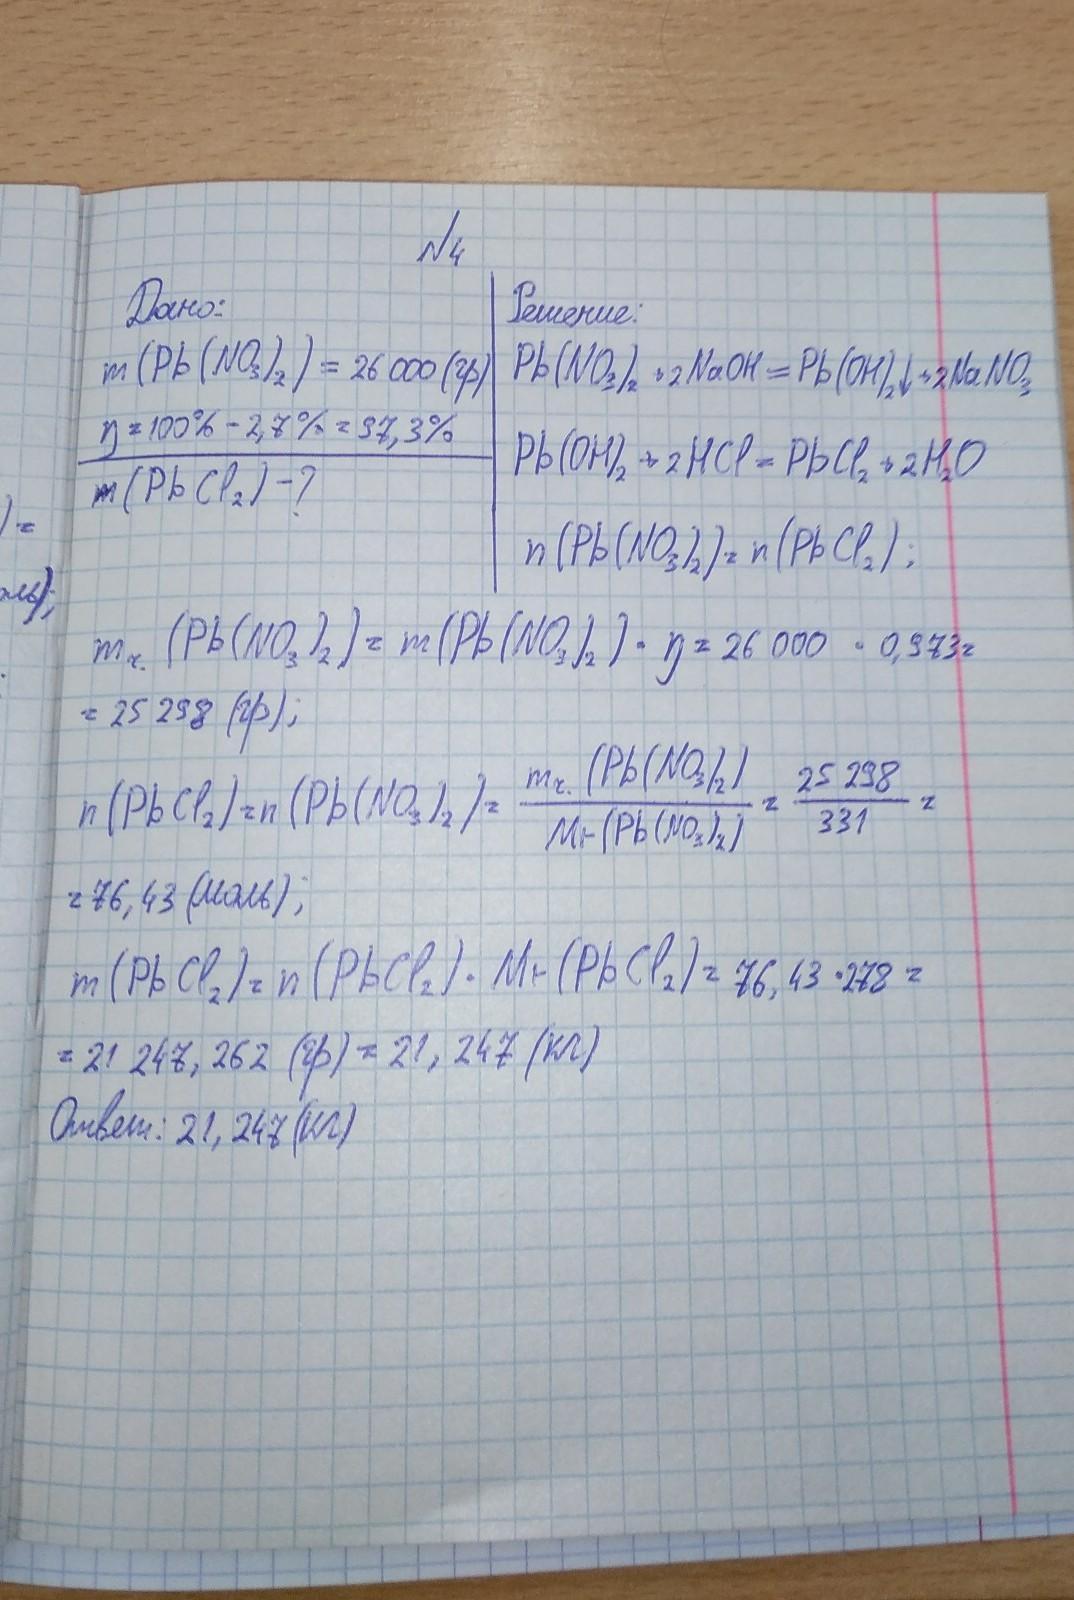 N4
Дано:
m(Pb(NO3)2) = 26 000 (гр)
η = 100% - 2,7% = 97,3%
m(PbCl2) - ?
Решение:
Pb(NO3)2 + 2NaOH = Pb(OH)2↓ + 2NaNO3
Pb(OH)2 + 2HCl = PbCl2 + 2H2O
n(Pb(NO3)2) = n(PbCl2);
mч. (Pb(NO3)2) = m(Pb(NO3)2) · η = 26 000 · 0,973 =
= 25 298 (гр);
n(PbCl2) = n(Pb(NO3)2) = mч. (Pb(NO3)2) / Mr(Pb(NO3)2) = 25 298 / 331 =
= 76,43 (моль);
m(PbCl2) = n(PbCl2) · Mr(PbCl2) = 76,43 · 278 =
= 21 247,262 (гр) = 21,247 (кг)
Ответ: 21,247 (кг)